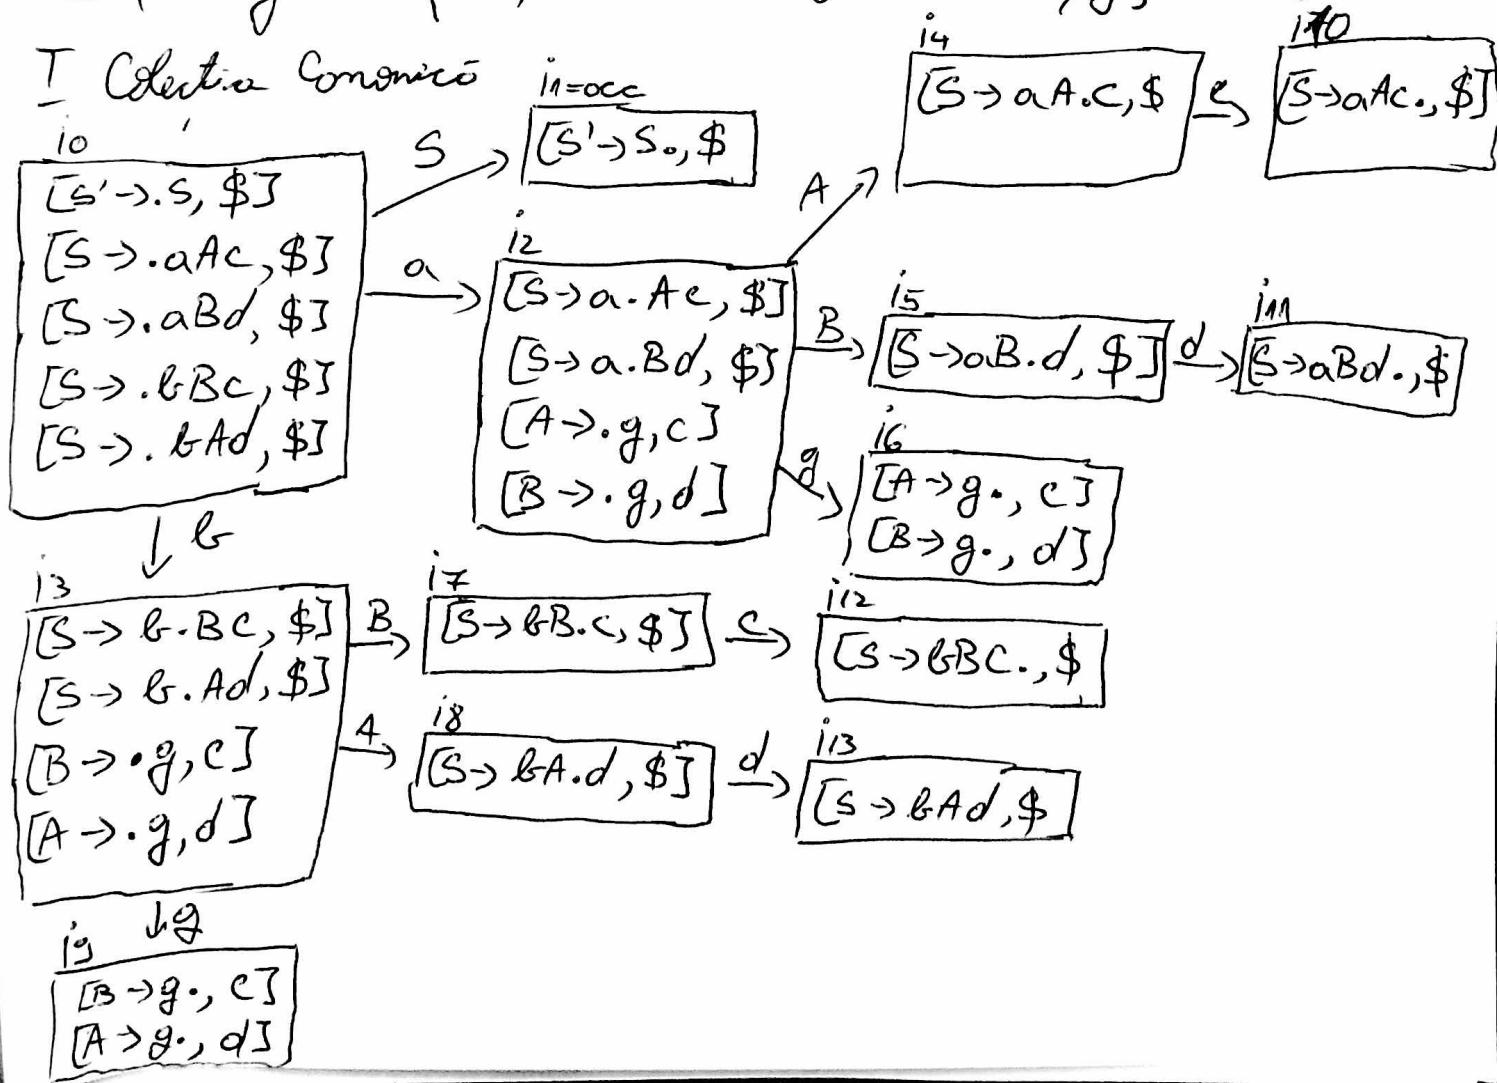 I Colectia Canonică
i0
[S'->.S, $]
[S->.aAc, $]
[S->.aBd, $]
[S->.bBc, $]
[S->.bAd, $]
S
i1=acc
[S'->S., $
a
i2
[S->a.Ac, $]
[S->a.Bd, $]
[A->.g, c]
[B->.g, d]
A
i4
[S->aA.c, $
c
i10
[S->aAc., $]
B
i5
[S->aB.d, $]
d
i11
[S->aBd., $
g
i6
[A->g., c]
[B->g., d]
b
i3
[S->b.Bc, $]
[S->b.Ad, $]
[B->.g, c]
[A->.g, d]
B
i7
[S->bB.c, $]
c
i12
[S->bBc., $
A
i8
[S->bA.d, $]
d
i13
[S->bAd, $
g
i9
[B->g., c]
[A->g., d]